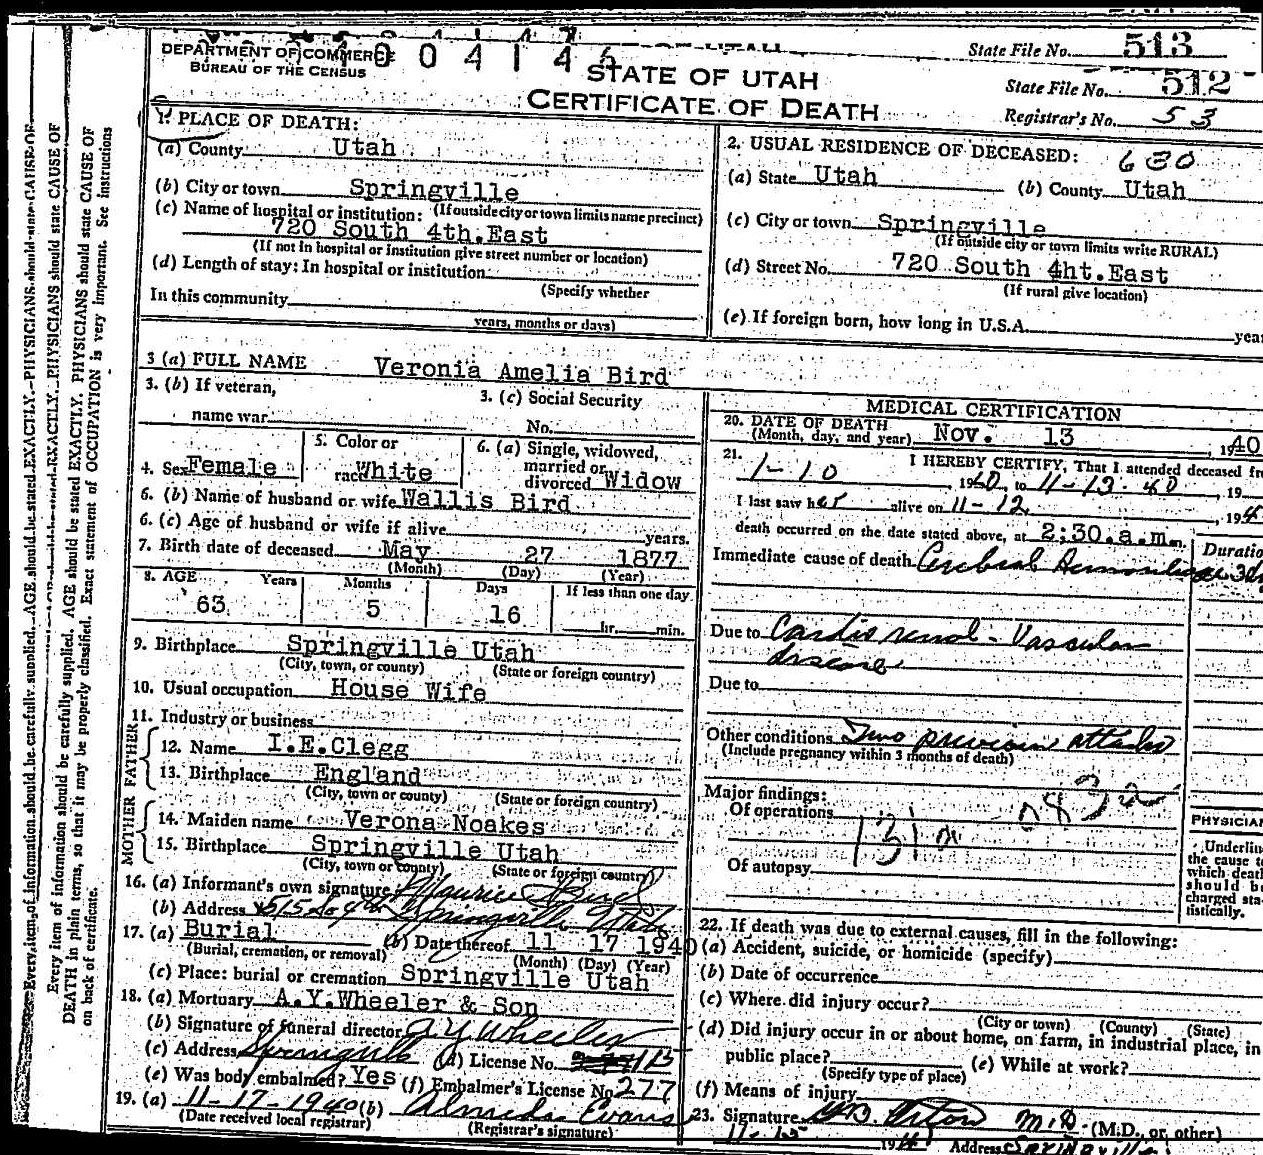 DEPARTMENT OF COMMERCE
BUREAU OF THE CENSUS
1 0 0 4 1 4 6
STATE OF UTAH
CERTIFICATE OF DEATH
State File No. 513
State File No. 512
Registrar's No. 53
1. PLACE OF DEATH:
(a) County Utah
(b) City or town Springville
(c) Name of hospital or institution: (If outside city or town limits name precinct)
720 South 4th.East
(If not in hospital or institution give street number or location)
(d) Length of stay: In hospital or institution
(Specify whether
In this community
years, months or days)
2. USUAL RESIDENCE OF DECEASED: 630
(a) State Utah (b) County Utah
(c) City or town Springville
(If outside city or town limits write RURAL)
(d) Street No. 720 South 4ht.East
(If rural give location)
(e) If foreign born, how long in U.S.A. yea
3 (a) FULL NAME Veronia Amelia Bird
3. (b) If veteran,
name war
3. (c) Social Security
No.
4. Sex Female
5. Color or
race White
6. (a) Single, widowed,
married or
divorced Widow
6. (b) Name of husband or wife Wallis Bird
6. (c) Age of husband or wife if alive years.
7. Birth date of deceased May 27 1877
(Month) (Day) (Year)
8. AGE Years Months Days If less than one day
63 5 16 hr. min.
9. Birthplace Springville Utah
(City, town, or county) (State or foreign country)
10. Usual occupation House Wife
11. Industry or business
FATHER
12. Name I.E.Clegg
13. Birthplace England
(City, town or county) (State or foreign country)
MOTHER
14. Maiden name Verona Noakes
15. Birthplace Springville Utah
(City, town or county) (State or foreign country)
16. (a) Informant's own signature Maurice Bird
(b) Address 515 So 4th Springville Utah
17. (a) Burial (b) Date thereof 11 17 1940
(Burial, cremation, or removal) (Month) (Day) (Year)
(c) Place: burial or cremation Springville Utah
18. (a) Mortuary A.Y.Wheeler & Son
(b) Signature of funeral director A Y Wheeler
(c) Address Springville (d) License No. 113
(e) Was body embalmed? Yes (f) Embalmer's License No 277
19. (a) 11-17-1940 (b) Almeda Evans
(Date received local registrar) (Registrar's signature)
MEDICAL CERTIFICATION
20. DATE OF DEATH
(Month, day, and year) Nov. 13, 1940
21. I HEREBY CERTIFY, That I attended deceased fr
1-10, 1940, to 11-13-40, 19
I last saw her alive on 11-12, 194
death occurred on the date stated above, at 2:30.a.m. Duratio
Immediate cause of death Cerebral Hemorrhage 3
Due to Cardio renal - Vascular
disease
Due to
Other conditions Two previous attacks
(Include pregnancy within 3 months of death)
Major findings:
Of operations
Of autopsy
PHYSICIAN
Underlin
the cause t
which deat
should b
charged sta-
tistically.
22. If death was due to external causes, fill in the following:
(a) Accident, suicide, or homicide (specify)
(b) Date of occurrence
(c) Where did injury occur?
(City or town) (County) (State)
(d) Did injury occur in or about home, on farm, in industrial place, in
public place? (e) While at work?
(Specify type of place)
(f) Means of injury
23. Signature Orton M.D. (M.D., or other)
11-15 194 Address Springville
Every item of information should be carefully supplied. AGE should be stated EXACTLY. PHYSICIANS should state CAUSE OF
Every item of information should be carefully supplied. AGE should be stated EXACTLY. PHYSICIANS should state CAUSE OF
DEATH in plain terms, so that it may be properly classified. Exact statement of OCCUPATION is very important. See instructions
on back of certificate.